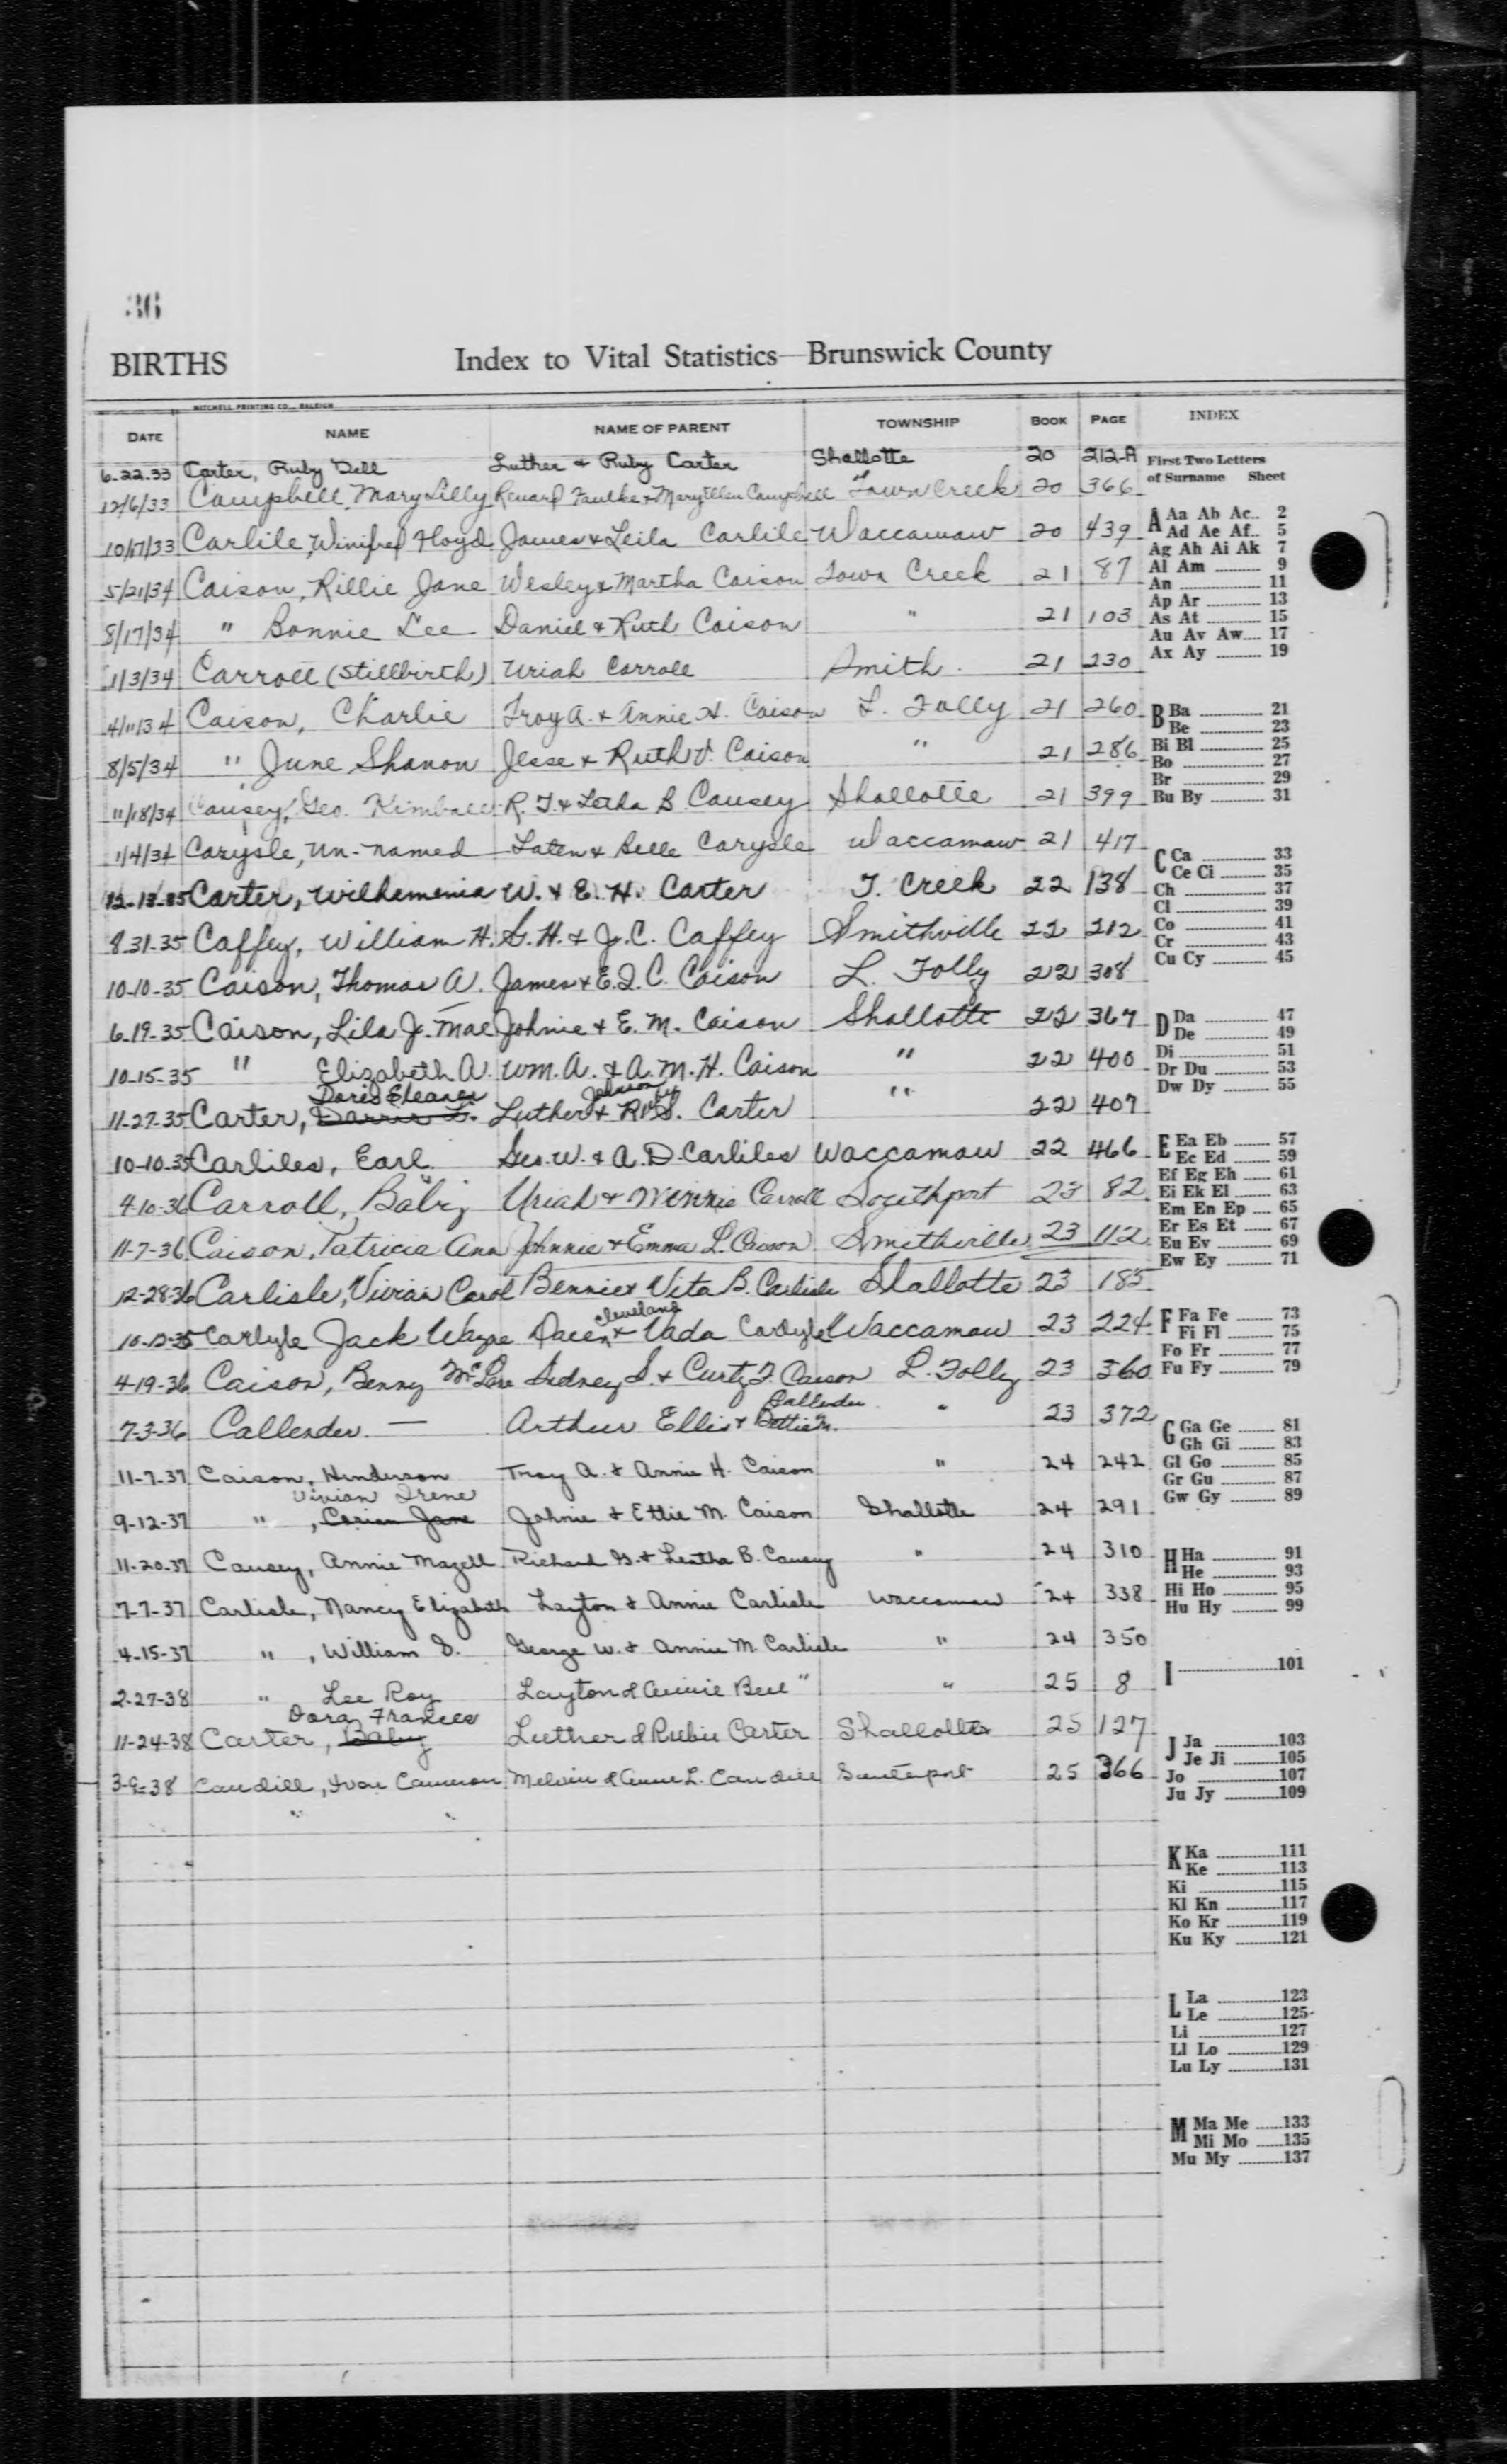 36
BIRTHS Index to Vital Statistics—Brunswick County
MITCHELL PRINTING CO., RALEIGH
DATE NAME NAME OF PARENT TOWNSHIP BOOK PAGE INDEX
6-22-33 Carter, Ruby Dell Luther & Ruby Carter Shallotte 20 212-A
12/6/33 Campbell, Mary Lilly Renard Faulke & Mary Ellen Campbell Town Creek 20 366
10/17/33 Carlile, Winifred Floyd James & Leila Carlile Waccamaw 20 439
5/21/34 Caison, Rillie Jane Wesley & Martha Caison Town Creek 21 87
8/17/34 " Bonnie Lee Daniel & Ruth Caison " 21 103
1/3/34 Carroll (Stillbirth) Uriah Carroll Smith 21 230
4/11/34 Caison, Charlie Troy A. & Annie H. Caison L. Folly 21 260
8/5/34 " June Shanon Jesse & Ruth V. Caison " 21 286
11/18/34 Causey, Geo. Kimball R. G. & Letha B. Causey Shallotte 21 399
1/4/34 Carysle, Un-named Laten & Belle Carysle Waccamaw 21 417
12-18-35 Carter, Wilhemenia W. & E. H. Carter T. Creek 22 138
8-31-35 Caffey, William H. G. H. & J. C. Caffey Smithville 22 212
10-10-35 Caison, Thomas A. James & E. I. C. Caison L. Folly 22 308
6-19-35 Caison, Lila J. Mae Johnie & E. M. Caison Shallotte 22 367
10-15-35 " Elizabeth A. Wm. A. & A. M. H. Caison " 22 400
Doris Eleanor Johnson
11-27-35 Carter, Darris E. Luther & S. Carter " 22 407
10-10-35 Carliles, Earl Geo. W. & A. D. Carliles Waccamaw 22 466
4-10-36 Carroll, Baby Uriah & Minnie Carroll Southport 23 82
11-7-36 Caison, Patricia Ann Johnnie & Emma L. Caison Smithville 23 112
12-28-36 Carlisle, Vivian Carol Bennie & Vita B. Carlisle Shallotte 23 185
Cleveland
10-12-35 Carlyle Jack Wayne & Vada Carlyle Waccamaw 23 224
4-19-36 Caison, Benny McLare Sidney S. & Curty F. Caison L. Folly 23 360
Callender
7-3-36 Callender — Arthur Ellis & Bettie M. " 23 372
11-7-37 Caison, Henderson Troy A. & Annie H. Caison " 24 242
Vivian Irene
9-12-37 " , Corian Jane Johnie & Ettie M. Caison Shallotte 24 291
11-20-37 Causey, Annie Mazell Richard G. & Leatha B. Causey " 24 310
7-7-37 Carlisle, Nancy Elizabeth Layton & Annie Carlisle Waccamaw 24 338
4-15-37 " , William S. George W. & Annie M. Carlisle " 24 350
2-27-38 " Lee Roy Layton & Annie Bell " " 25 8
Dora Frances
11-24-38 Carter, Baby Luther & Rubie Carter Shallotte 25 127
3-9-38 Caudill, Ivan Cameron Melvin & Anne L. Caudill Southport 25 366
First Two Letters
of Surname Sheet
A Aa Ab Ac 2
Ad Ae Af 5
Ag Ah Ai Ak 7
Al Am 9
An 11
Ap Ar 13
As At 15
Au Av Aw 17
Ax Ay 19
B Ba 21
Be 23
Bi Bl 25
Bo 27
Br 29
Bu By 31
C Ca 33
Ce Ci 35
Ch 37
Cl 39
Co 41
Cr 43
Cu Cy 45
D Da 47
De 49
Di 51
Dr Du 53
Dw Dy 55
E Ea Eb 57
Ec Ed 59
Ef Eg Eh 61
Ei Ek El 63
Em En Ep 65
Er Es Et 67
Eu Ev 69
Ew Ey 71
F Fa Fe 73
Fi Fl 75
Fo Fr 77
Fu Fy 79
G Ga Ge 81
Gh Gi 83
Gl Go 85
Gr Gu 87
Gw Gy 89
H Ha 91
He 93
Hi Ho 95
Hu Hy 99
I 101
J Ja 103
Je Ji 105
Jo 107
Ju Jy 109
K Ka 111
Ke 113
Ki 115
Kl Kn 117
Ko Kr 119
Ku Ky 121
L La 123
Le 125
Li 127
Ll Lo 129
Lu Ly 131
M Ma Me 133
Mi Mo 135
Mu My 137